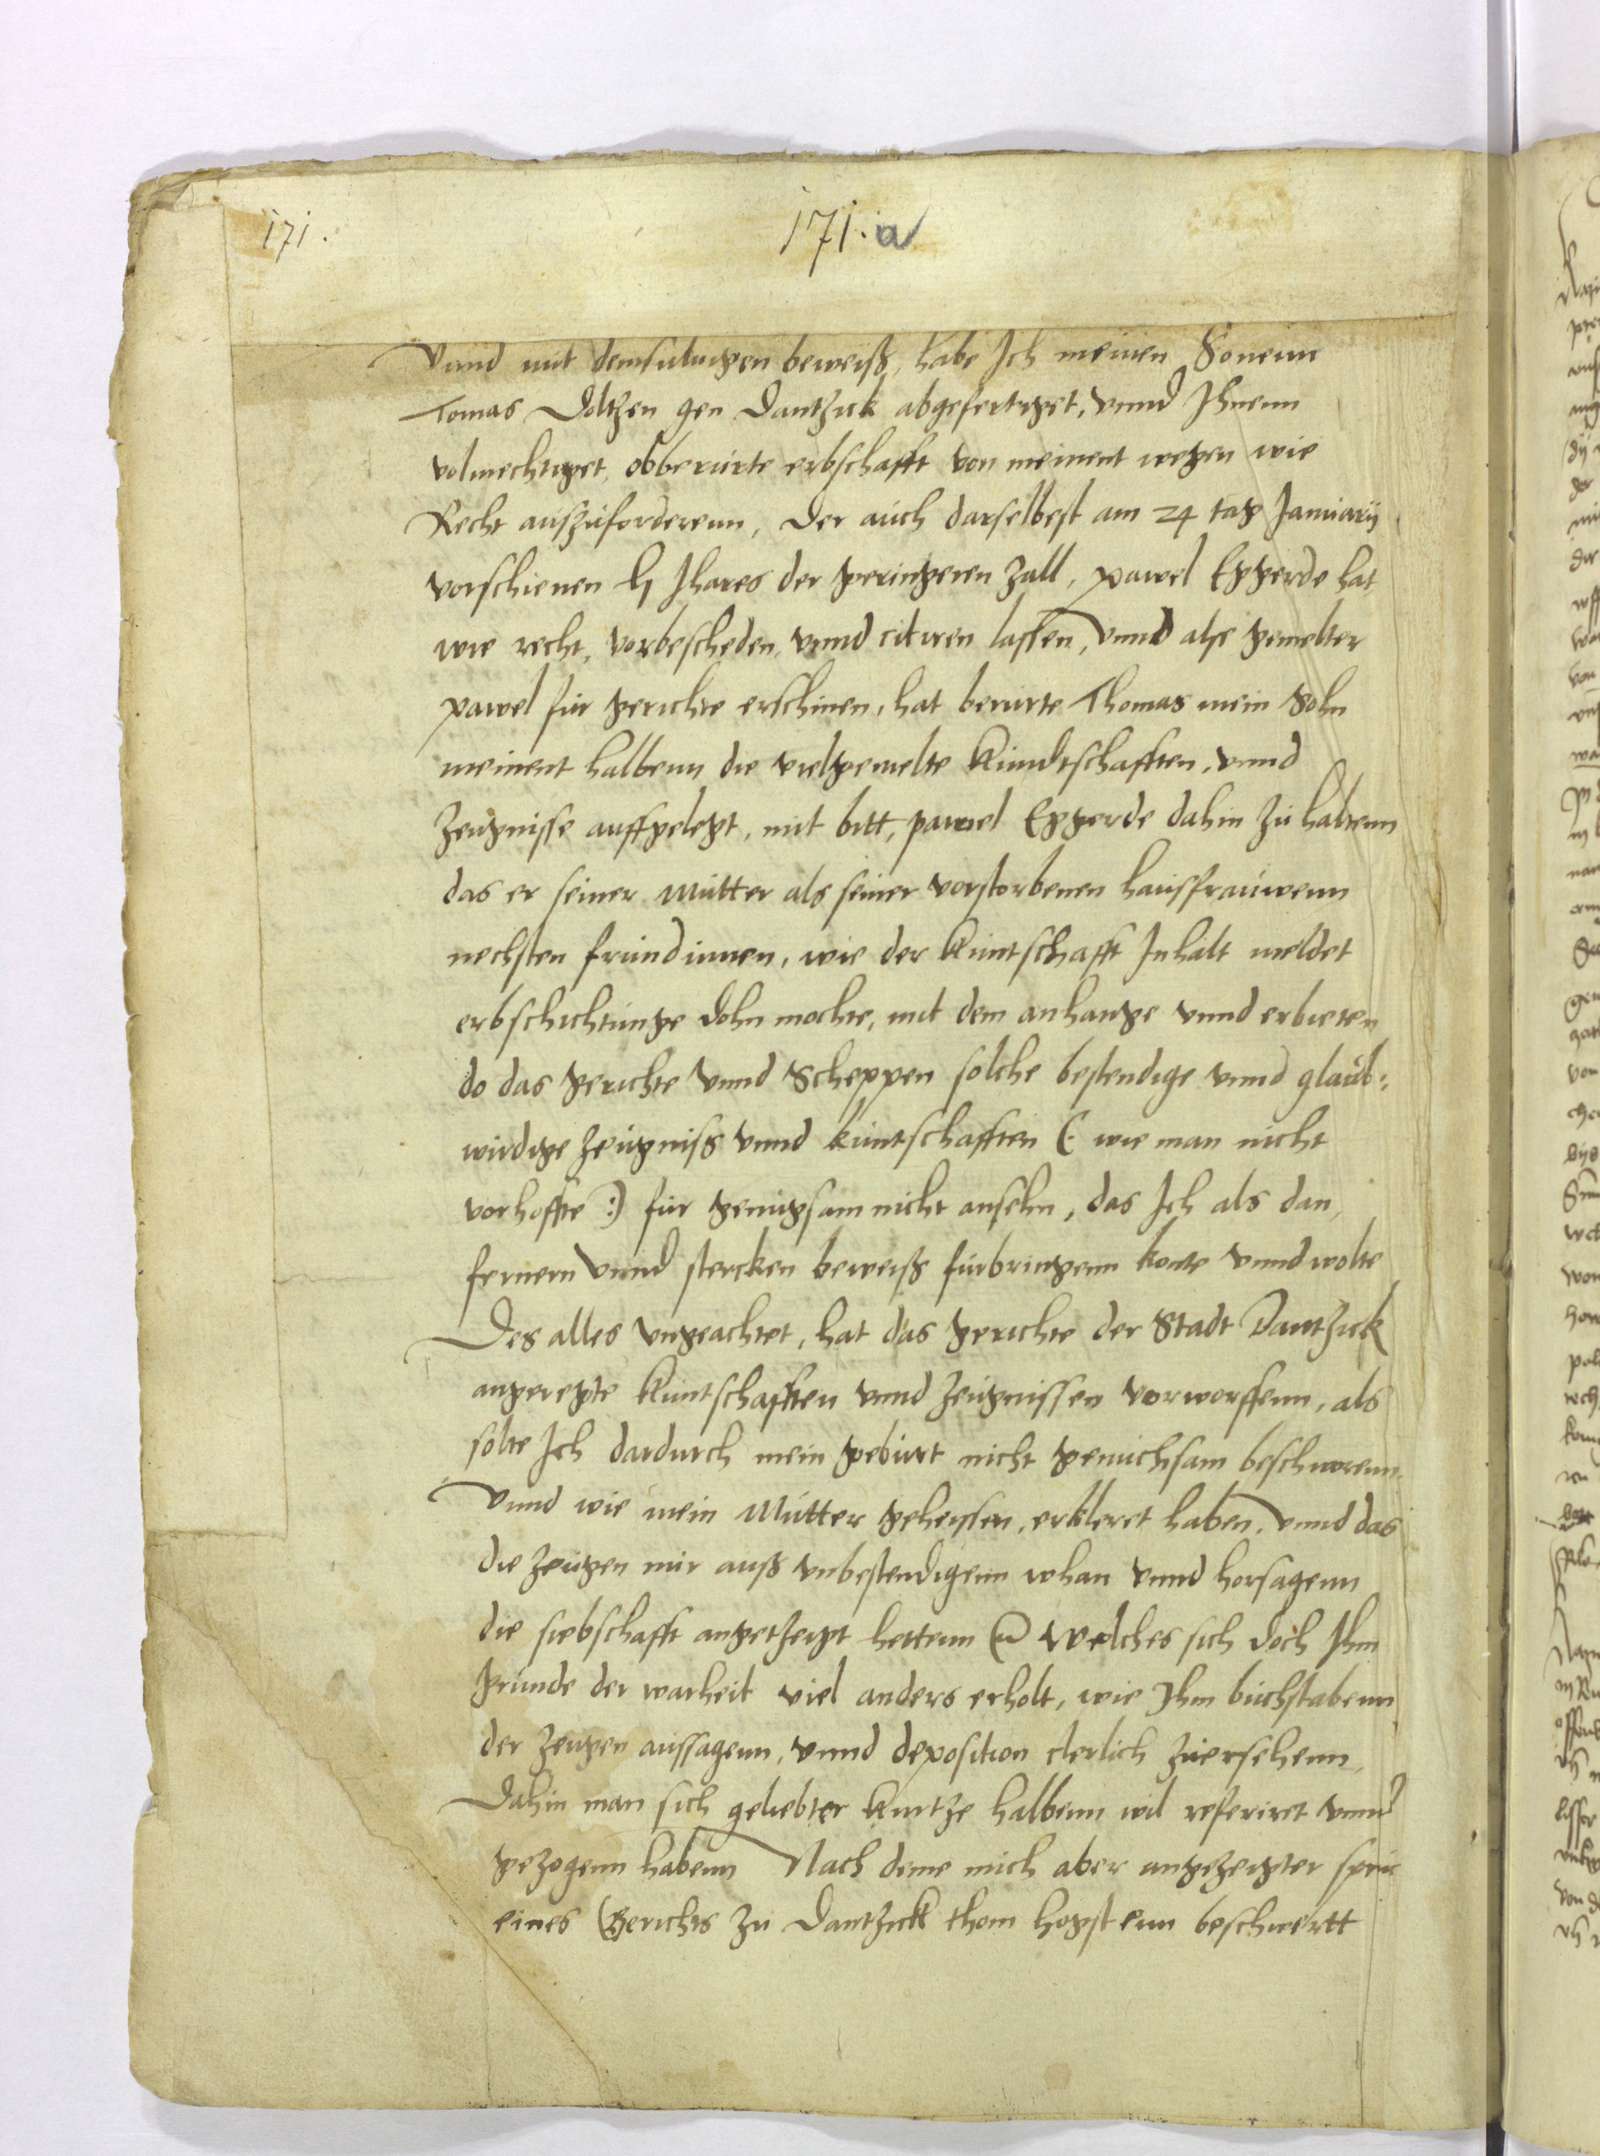 171.
171.a
Vnnd mit demsuluigen beweiß, habe Ich meinen Sonenn
Tomas Doltzen gen Dantzick abgefertiget, vnnd Ihnenn
volmechtiget, obberurte erbschafft von meinent wegen wie
Recht auszufordernn, Der auch darselbest am 24 tag Januarij
vorschienen Ihares der geringeren zall, pawel Eggerde hat
wie recht, vorbescheden, vnnd citiren lassen, vnnd alse gemelter
pawel fur gerichte erschinen, hat berurte Thomas mein Sohn
meinent halbenn die vielgemelte kundtschafften, vnnd
Zeugnisse auffgelegt, mit bitt, pawel Eggerde dahin zu haltenn
das er seiner Mutter als seiner vorstorbenen hausfrauwenn
nechsten frundinnen, wie der kuntschafft Inhalt meldet
erbschichtunge dohn mochte, mit dem anhange vnnd erbieten
do das gerichte vnnd Scheppen solche bestendige vnnd glaub:
wirdige Zeugniß vnnd kuntschafften (: wie man nicht
vorhoffte :) fur genugsam nicht ansehn, das Ich als dan
fernern vnnd stercken beweiß furbringenn konte vnnd wolte
Des alles vngeachtet, hat das gerichte der Stadt Dantzick
angeregte kuntschafften vnnd Zeugnissen vorworffenn, als
solte Ich dardurch mein geburt nicht genuchsam beschworenn
Vnnd wie mein Mutter geheissen, erkleret haben, vnnd das
die Zeugen mir auß vnbestendigenn whan vnnd horsagenn
die siebschafft angetzeigt hettenn Welches sich doch Ihm
grunde der warheit viel anders erholt, wie Ihm buchstabenn
der Zeugen aussagenn, vnnd deposition clerlich zuersehenn,
Dahin man sich geliebter kurtze halbenn wil referiret vnnd
gezogenn habenn Nach deme mich aber angezeigter spru
eines Gerichts zu Dantzick thom hogstenn beschwertt